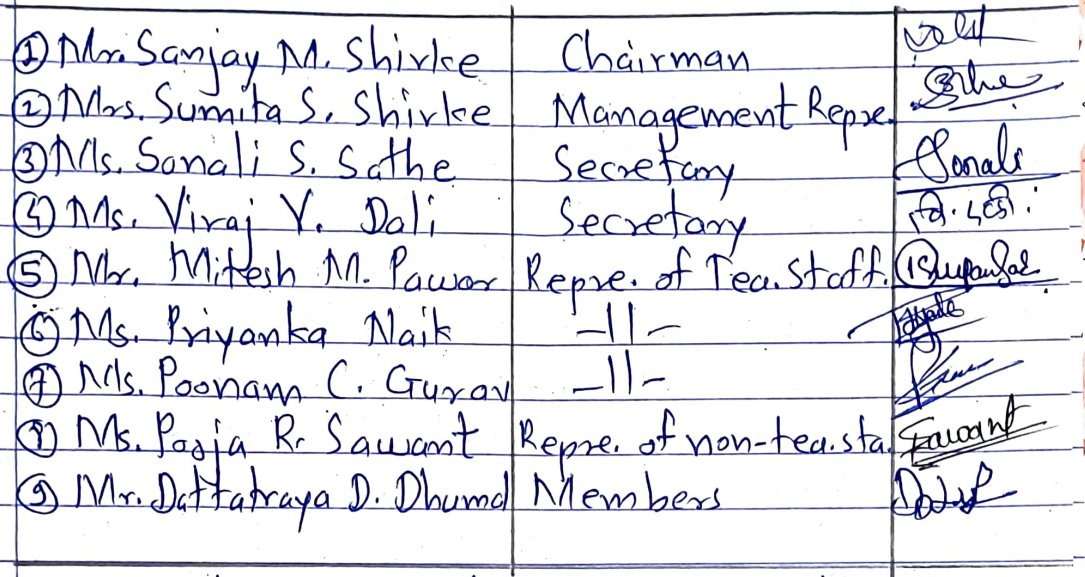 ① Mr. Sanjay M. Shirke Chairman
② Mrs. Sumita S. Shirke Management Repre.
③ Ms. Sonali S. Sathe Secretary Sonali
④ Ms. Viraj Y. Dali Secretary
⑤ Mr. Mitesh M. Pawar Repre. of Tea. Staff.
⑥ Ms. Priyanka Naik -11-
⑦ Ms. Poonam C. Gurav -11-
⑧ Ms. Pooja R. Sawant Repre. of non-tea. sta. Sawant
⑨ Mr. Dattatraya D. Dhumal Members